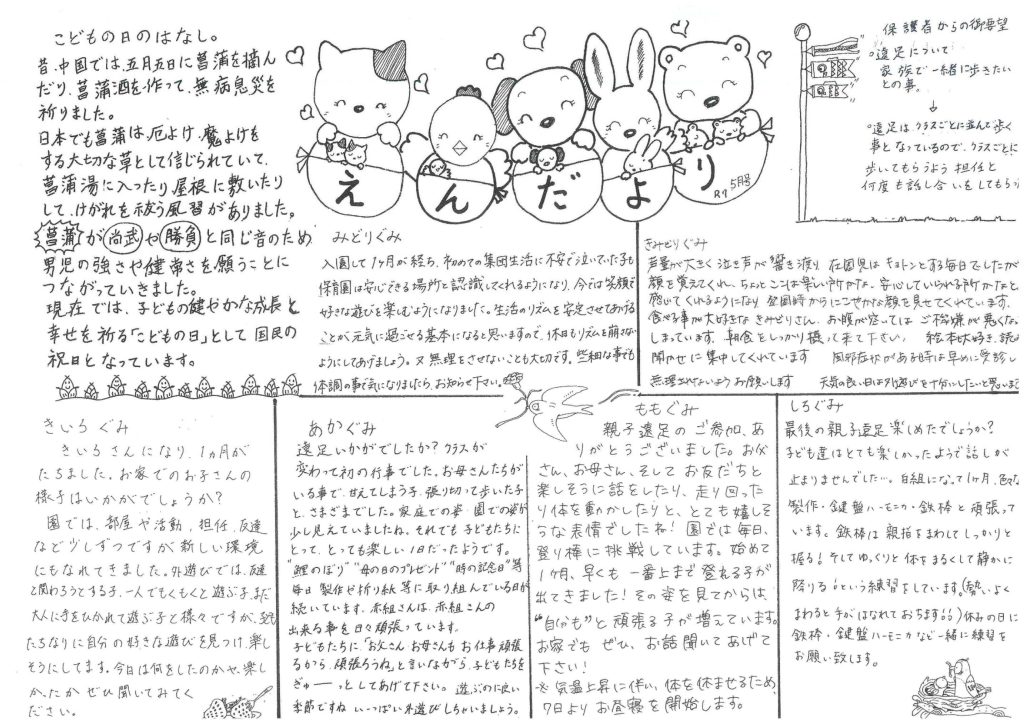 こどもの日のはなし。
昔、中国では、五月五日に菖蒲を摘ん
だり、菖蒲酒を作って、無病息災を
祈りました。
日本でも菖蒲は、厄よけ、魔よけを
する大切な草として信じられていて、
菖蒲湯に入ったり、屋根に敷いたり
して、けがれを祓う風習がありました。
菖蒲が尚武や勝負と同じ音のため
男児の強さや健常さを願うことに
つながっていきました。
現在では、子どもの健やかな成長と
幸せを祈る「こどもの日」として国民の
祝日となっています。
えんだより
R7 5月号
保護者からの御要望
遠足について
家族で一緒に歩きたい
との事。
↓
遠足は、クラスごとに並んで歩く
事となっているので、クラスごとに
歩いてもらうよう担任と
何度も話し合いをしてもらう
みどりぐみ
入園して1ヶ月が経ち、初めての集団生活に不安で泣いていた子も
保育園は安心できる場所と認識してくれるようになり、今では笑顔で
好きな遊びを楽しむようになりました。生活のリズムを安定させてあげる
ことが元気に過ごせる基本になると思いますので、休日もリズムを崩さない
ようにしてあげましょう。又無理をさせないことも大切です。些細な事でも
体調の事で気になりましたら、お知らせ下さい。
きみどりぐみ
声量が大きく泣き声が響き渡り、在園児はキョトンとする毎日でしたが
顔を覚えてくれ、ちょっとここは楽しい所かな、安心していられる所かなと
感じてくれるようになり 登園時からにこやかな顔を見せてくれています。
食べる事が大好きなきみどりさん、お腹が空いてはご機嫌が悪くな
しまっています。朝食をしっかり摂って来て下さい。 絵本は大好き、読み
聞かせに集中してくれています 風邪症状がある時は早めに受診し
無理されないようお願いします 天気の良い日は外遊びを十分にしたいと思いま
きいろぐみ
きいろさんになり、1ヵ月が
たちました。お家でのお子さんの
様子はいかがでしょうか?
園では、部屋や活動、担任、友達
など少しずつですが新しい環境
にもなれてきました。外遊びでは、友達
と関わろうとする子、一人でもくもくと遊ぶ子、まだ
大人に手をひかれて遊ぶ子と様々ですが、子ども
たちなりに自分の好きな遊びを見つけ、楽し
そうにしてます。今日は何をしたのかや、楽し
かったか ぜひ聞いてみてく
ださい。
あかぐみ
遠足いかがでしたか? クラスが
変わって初の行事でした。お母さんたちが
いる事で、甘えてしまう子、張り切って歩いた子
と、さまざまでした。家庭での姿・園での姿が
少し見えていましたね。それでも子どもたちに
とって、とっても楽しい1日だったようです。
"鯉のぼり" "母の日のプレゼント" "時の記念日"等
毎日 製作が折り紙等に取り組んでいる日が
続いています。赤組さんは、赤組さんの
出来る事を日々頑張っています。
子どもたちに、"お父さん お母さんも お仕事頑張
るから、頑張ろうね"と言いながら、子どもたちを
ぎゅーーっとしてあげて下さい。 遊ぶのに良い
季節ですね いーっぱい外遊びしちゃいましょう。
ももぐみ
親子遠足のご参加、あ
りがとうございました。お父
さん、お母さん、そしてお友だちと
楽しそうに話をしたり、走り回った
り体を動かしたりと、とても嬉しそ
うな表情でしたね! 園では毎日、
登り棒に挑戦しています。始めて
1ヶ月、早くも一番上まで登れる子が
出てきました! その姿を見てからは、
"自分も!!"と頑張る子が増えています。
お家でも ぜひ、お話聞いてあげて
下さい!
※気温上昇に伴い、体を休ませるため、
7日よりお昼寝を開始します。
しろぐみ
最後の親子遠足楽しめたでしょうか?
子ども達はとても楽しかったようで話しが
止まりませんでした…。白組になって1ヶ月、色々な
製作・鍵盤ハーモニカ・鉄棒と頑張って
います。鉄棒は親指をまわしてしっかりと
握る! そしてゆっくりと体をまるくして静かに
降りる!という練習をしています。(勢いよく
まわると手がはなれておちます)休みの日に
鉄棒・鍵盤ハーモニカなど一緒に練習を
お願い致します。